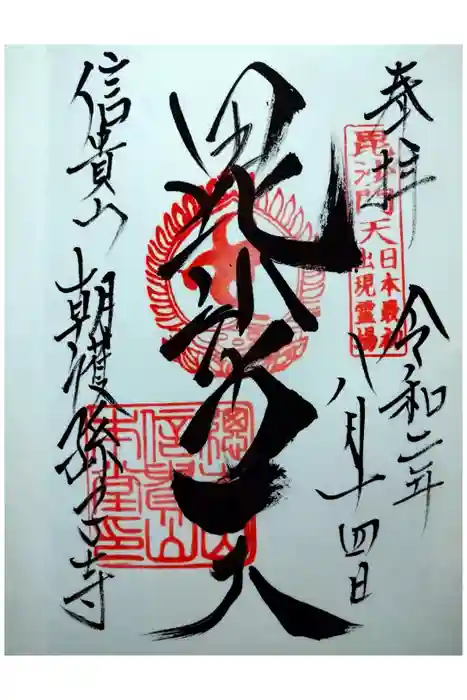 奉拝
毘沙門天
日本最初
出現霊場
令和二年
八月十四日
毘沙門天
信貴山
朝護孫子寺
總本山
信貴山
本堂印